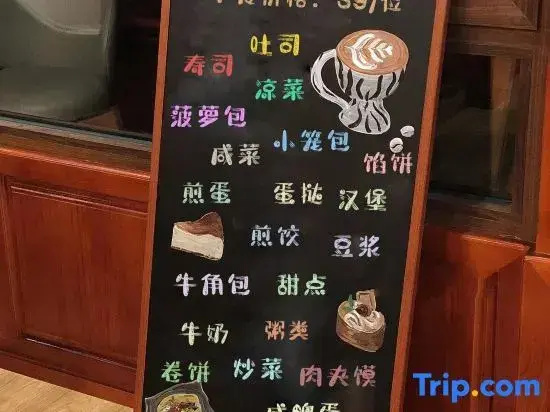 价格：39/位
吐司
寿司
凉菜
菠萝包
小笼包
咸菜
馅饼
煎蛋 蛋挞 汉堡
煎饺 豆浆
牛角包 甜点
牛奶 粥类
卷饼 炒菜 肉夹馍
咸鸭蛋
Trip.com